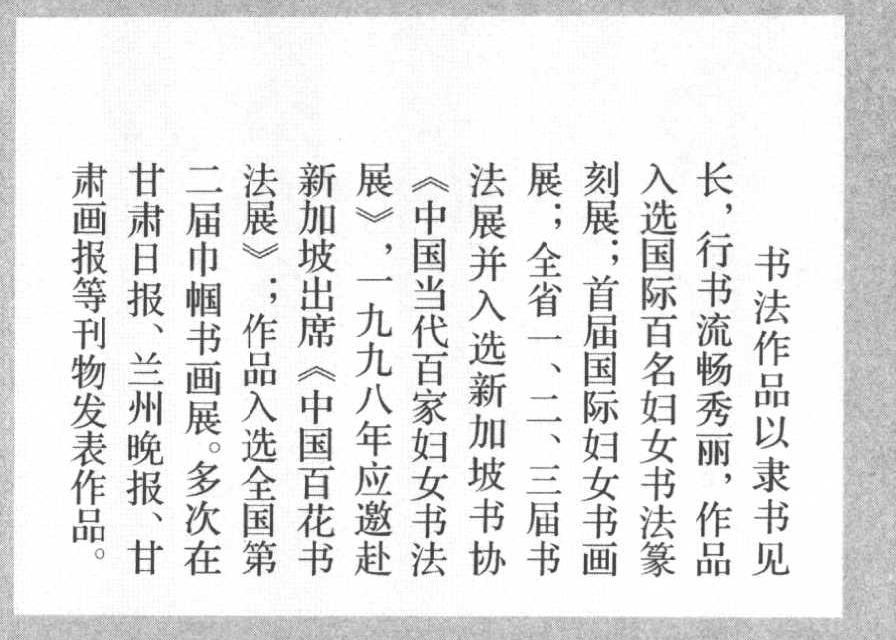 书法作品以隶书见
长，行书流畅秀丽，作品
入选国际百名妇女书法篆
刻展；首届国际妇女书画
展；全省一、二、三届书
法展并入选新加坡书协
《中国当代百家妇女书法
展》，一九九八年应邀赴
新加坡出席《中国百花书
法展》；作品入选全国第
二届巾帼书画展。多次在
甘肃日报、兰州晚报、甘
肃画报等刊物发表作品。